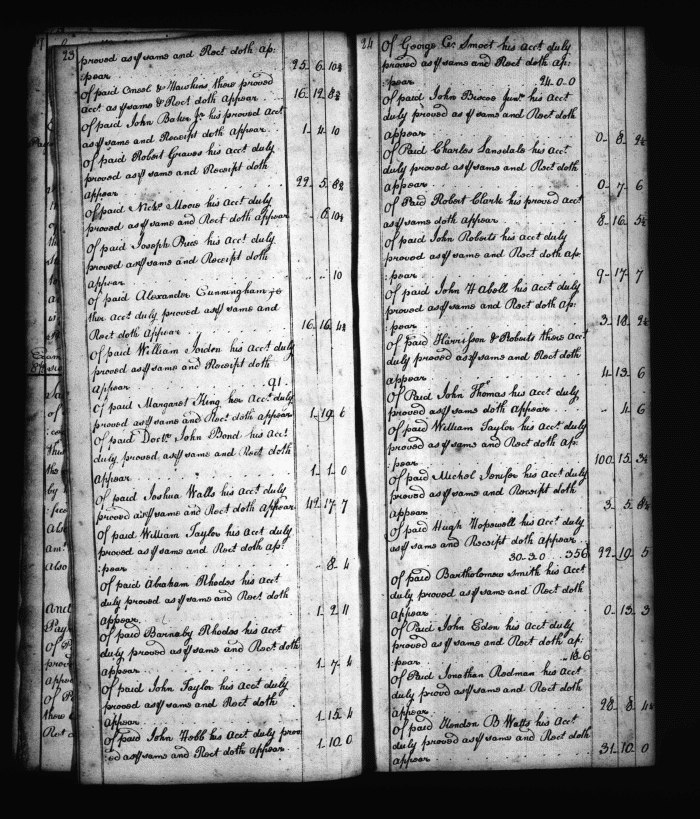 23
proved as ⅌ same and Rect doth ap:
:pear 25. 6. 10½
Of paid Oneal & Hawkins there proved
acct as ⅌ same & Rect doth Appear 16. 12. 8½
Of paid John Baker Jr his proved Acct
as ⅌ same and Receipt doth Appear 1. 4. 10
Of paid Robert Graves his Acct duly
proved as ⅌ same and Receipt doth
Appear 22. 5. 8½
Of paid Nichs Moore his Acct duly
proved as ⅌ same and Rect doth appear 6. 10½
Of paid Joseph Rues his Acct duly
proved as ⅌ same and Receipt doth
Appear 10
Of paid Alexander Cunningham
ther Acct duly proved as ⅌ same and
Rect doth Appear 16. 16. 4½
Of paid William Jorden his Acct duly
proved as ⅌ same and Receipt doth
Appear 91.
Of paid Margaret King her Acct duly
proved as ⅌ same and Rect doth appear 1. 19. 6
Of paid Doctr John Bond his Acct
duly proved as ⅌ same and Rect doth
Appear 1. 1. 0
Of paid Joshua Walls his Acct duly
proved as ⅌ same and Rect doth Appear 42. 17. 7
Of paid William Taylor his Acct duly
proved as ⅌ same and Rect doth ap:
:pear 8. 4
Of paid Abraham Rhodes his Acct
duly proved as ⅌ same and Rect doth
Appear 1. 2. 11
Of paid Barnaby Rhodes his Acct
duly proved as ⅌ same and Rect doth
Appear 1. 7. 4
Of paid John Taylor his Acct duly
proved as ⅌ same and Rect doth
Appear 1. 15. 4
Of paid John Hobb his Acct duly prov
ed as ⅌ same and Rect doth appear 1. 10. 0
24
Of George Cr Smoot his Acct duly
proved as ⅌ same and Rect doth Ap:
:pear 24. 0. 0
Of paid John Biscoe Junr his Acct
duly proved as ⅌ same and Rect doth
Appear 0. 8. 2½
Of Paid Charles Lansdale his Acct
duly proved as ⅌ same and Rect doth
appear 0. 7. 6
Of Paid Robert Clark his proved acct
as ⅌ same doth Appear 8. 16. 5½
Of paid John Roberts his Acct duly
proved as ⅌ same and Rect doth Ap:
:pear 9. 17. 7
Of paid John H Abell his Acct duly
proved as ⅌ same and Rect doth Ap:
:pear 3. 18. 2½
Of paid Harrisson & Roberts there Acct
duly proved as ⅌ same and Rect doth
Appear 4. 13. 6
Of Paid John Thomas his Acct duly
proved as ⅌ same doth Appear 4. 6
Of paid William Taylor his Acct duly
proved as ⅌ same and Rect doth Ap:
:pear 100. 15. 3¼
Of paid Michel Jenifer his Acct duly
proved as ⅌ same and Receipt doth
Appear 3. 5. 8½
Of paid Hugh Hopewell his Acct duly
as ⅌ same and Receipt doth Appear
30. 3. 0 356 22. 10. 5
Of paid Bartholomew Smith his Acct
duly proved as ⅌ same and Rect doth
Appear 0. 13. 3
Of Paid John Edon his Acct duly
proved as ⅌ same and Rect doth ap:
:pear 18. 6
Of Paid Jonathan Rodman his Acct
duly proved as ⅌ same and Rect doth
Appear 28. 8. 4½
Of paid Hendon B Watts his Acct
duly proved as ⅌ same and Rect doth
appear 31. 10. 0